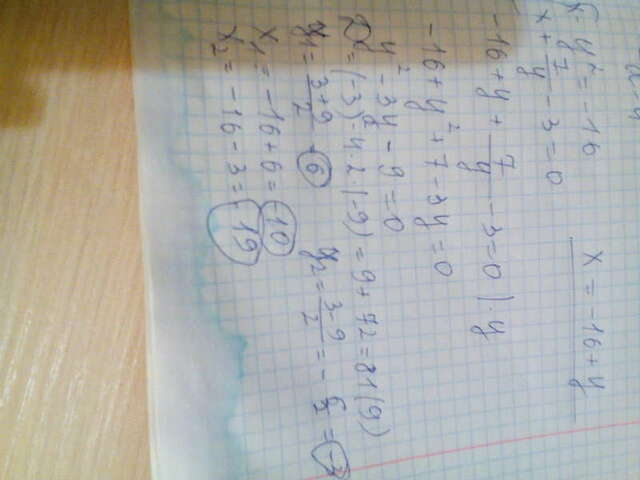 x - y² = -16 x = -16 + y
x + 7/y - 3 = 0
-16 + y + 7/y - 3 = 0 | · y
-16 + y² + 7 - 3y = 0
y² - 3y - 9 = 0
D = (-3)² - 4 · 2 · (-9) = 9 + 72 = 81 (9)
y₁ = (3+9)/2 = 6 y₂ = (3-9)/2 = -6/2 = -3
x₁ = -16 + 6 = -10
x₂ = -16 - 3 = -19